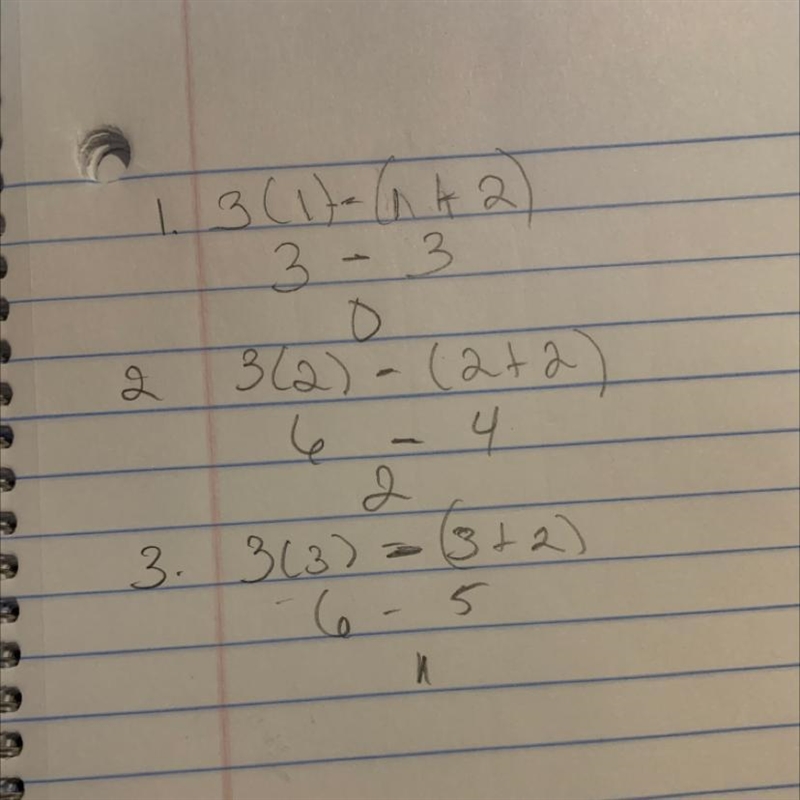 1. 3(1)-(n+2)
3 - 3
0
2 3(2) - (2+2)
6 - 4
2
3. 3(3) - (3+2)
-6 - 5